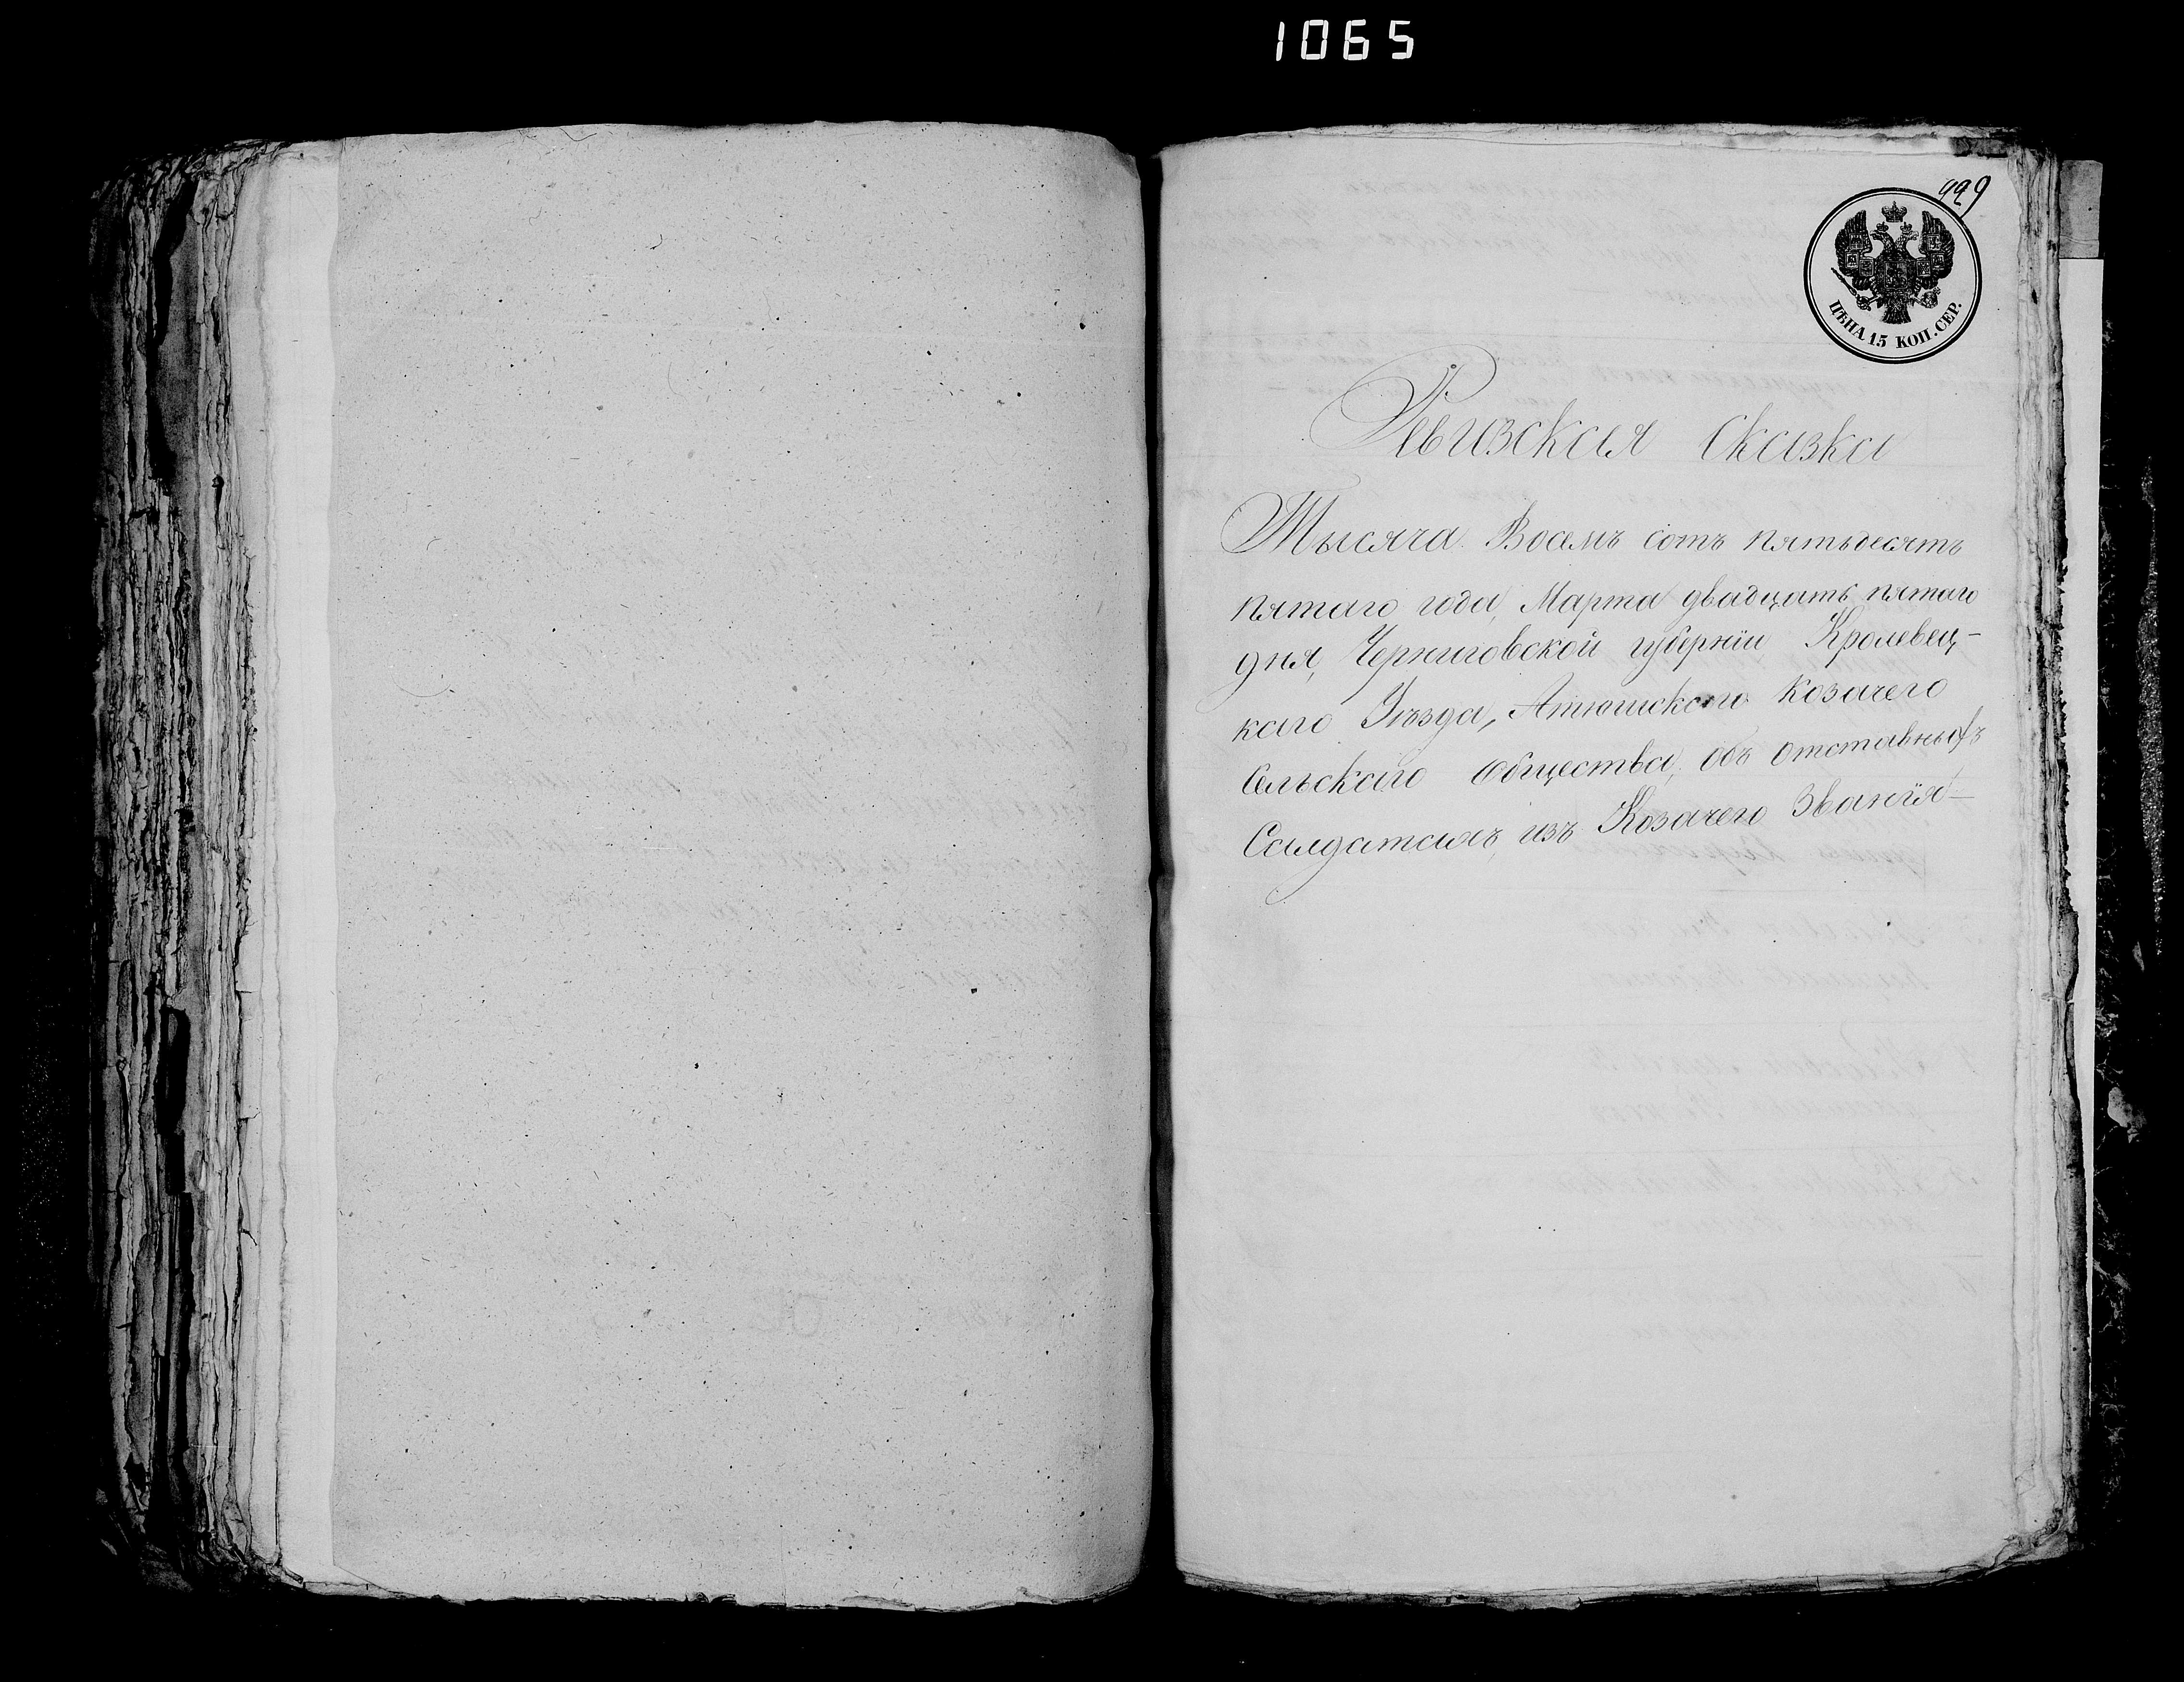 1065
929
ЦѢНА 15 КОП. СЕР.
Ревизская Сказка
Тысяча Восемъ сотъ пятьдесятъ
пятаго года, Марта двадцать пятаго
дня, Черниговской губерніи Кролевец-
каго Уѣзда, Атюшского Козачего
Сельскаго Общества, объ отставныхъ
Салдатахъ изъ Козачего Званія